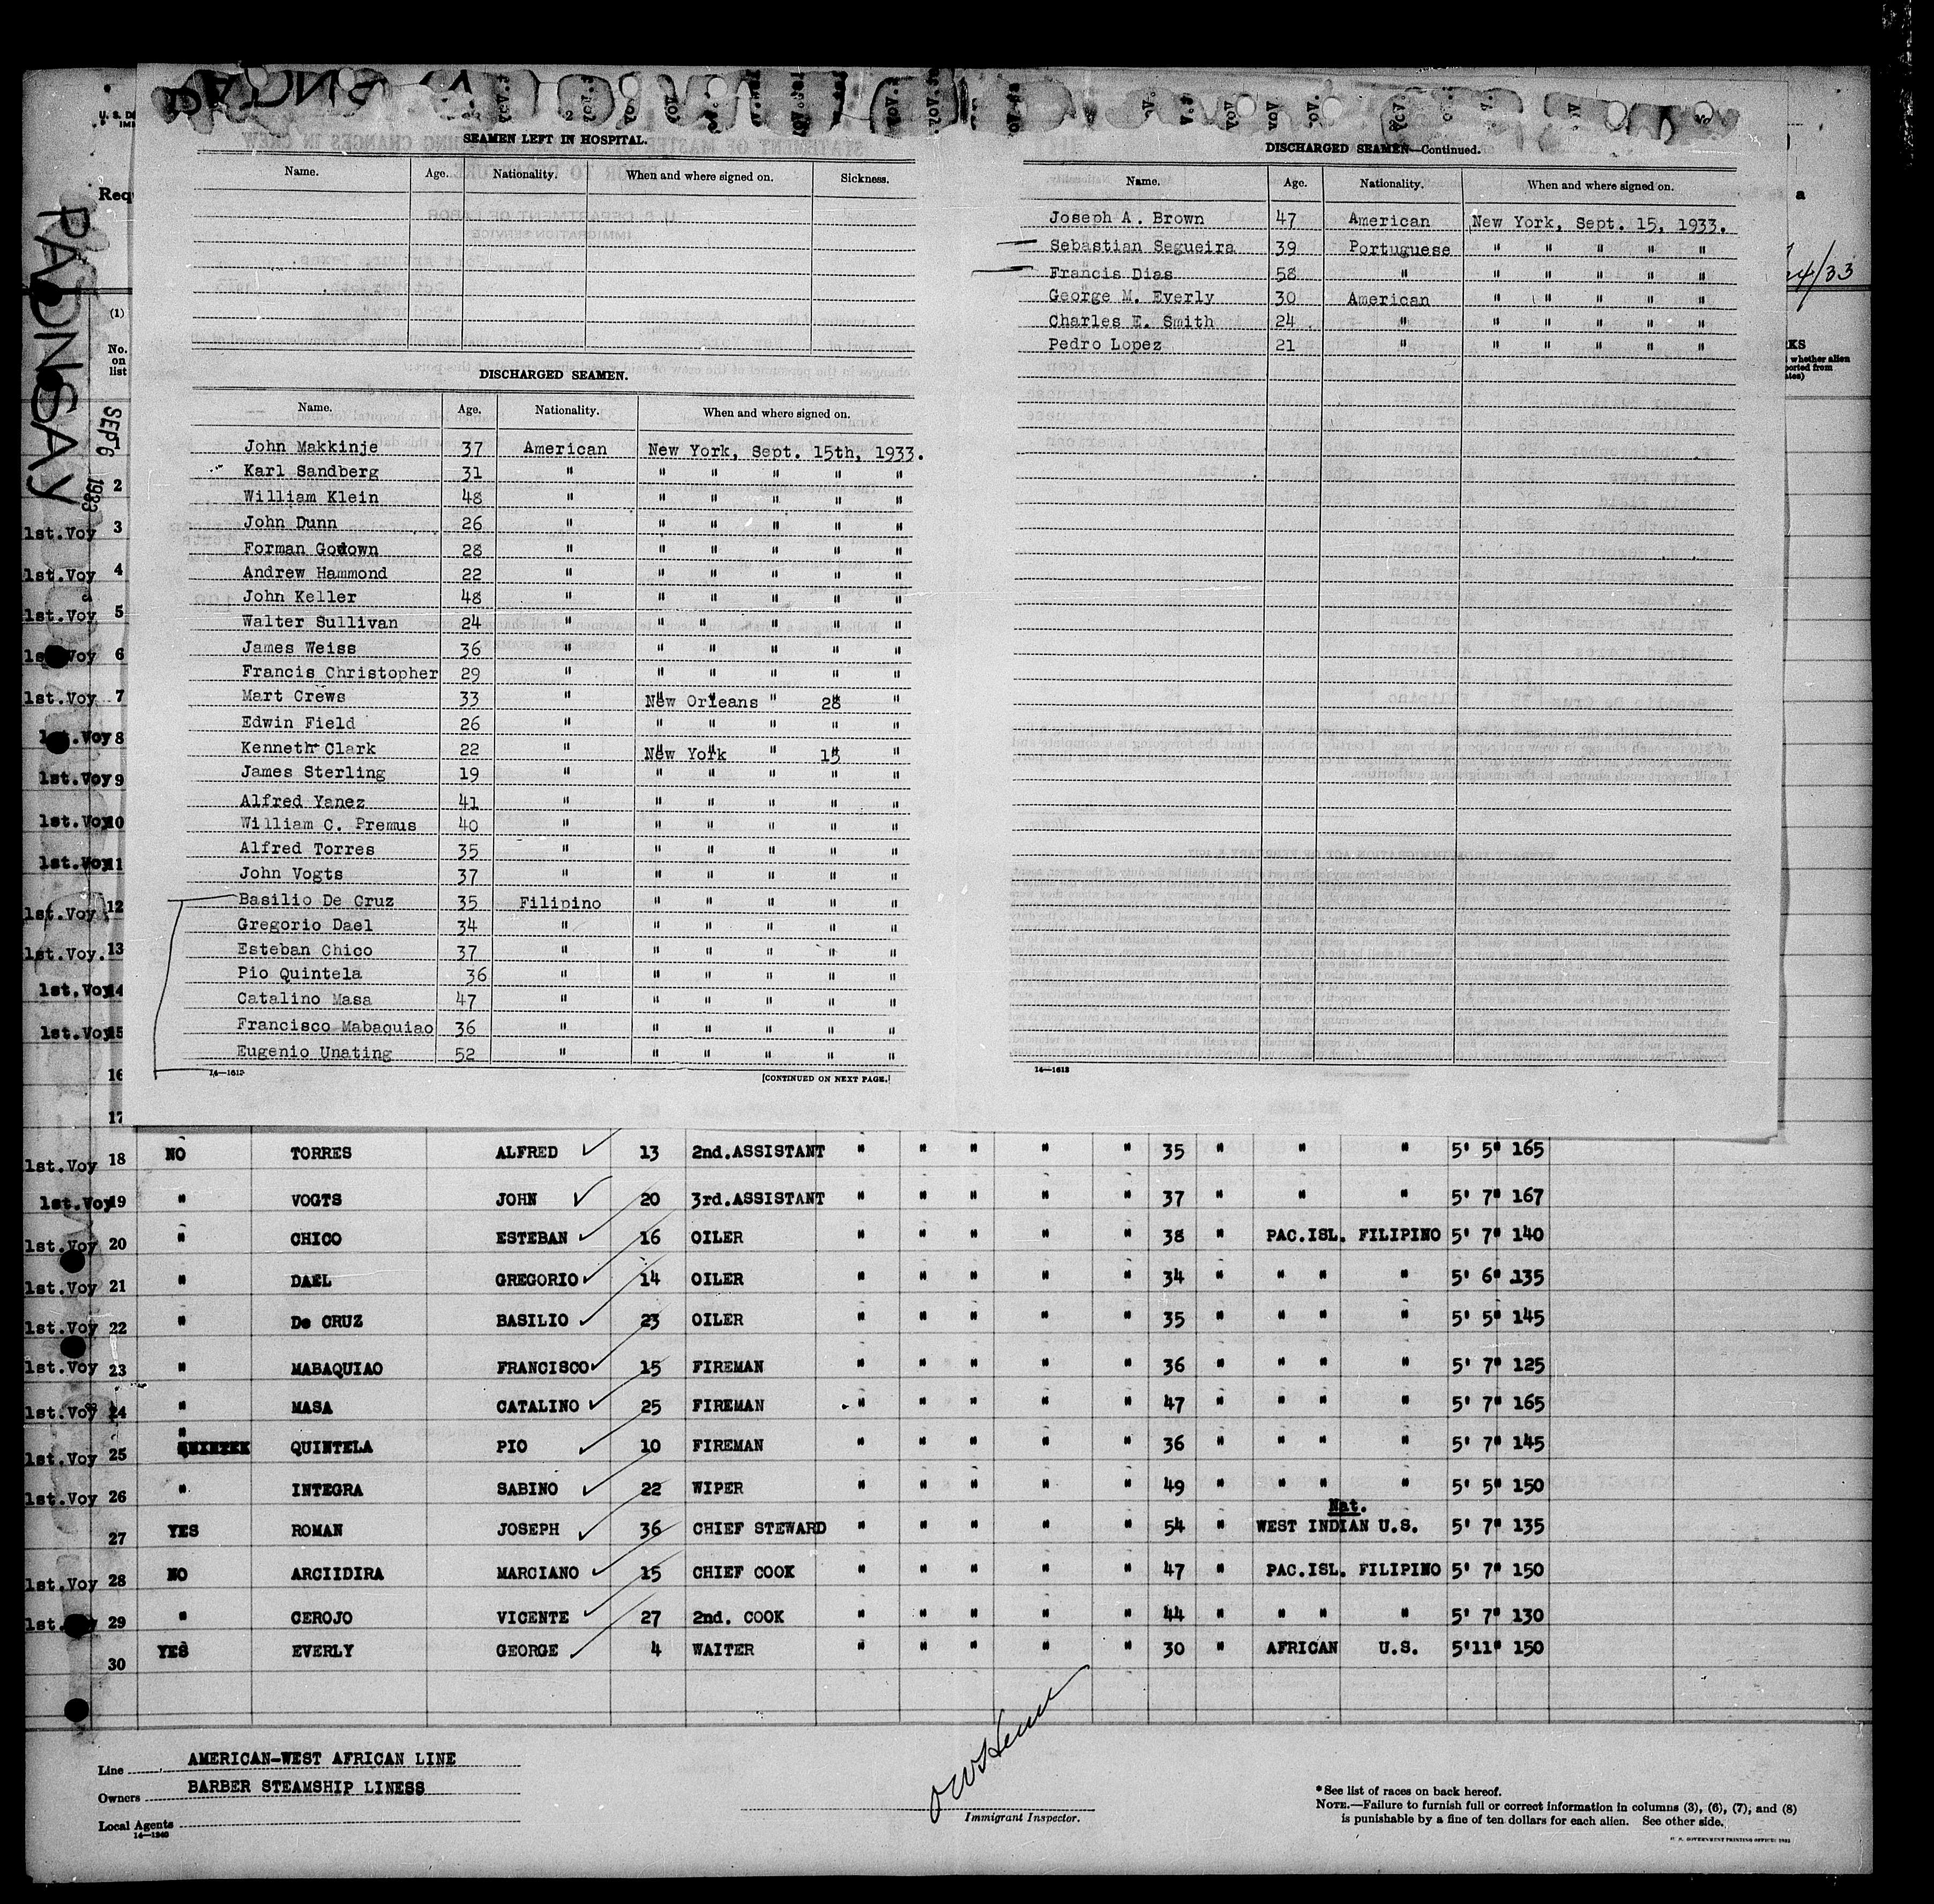 SEAMEN LEFT IN HOSPITAL.
Name. Age. Nationality. When and where signed on. Sickness.
DISCHARGED SEAMEN.
Name. Age. Nationality. When and where signed on.
John Makkinje 37 American New York, Sept. 15th, 1933.
Karl Sandberg 31 " " " " " "
William Klein 48 " " " " " "
John Dunn 26 " " " " " "
Forman Godown 28 " " " " " "
Andrew Hammond 22 " " " " " "
John Keller 48 " " " " " "
Walter Sullivan 24 " " " " " "
James Weiss 36 " " " " " "
Francis Christopher 29 " " " " " "
Mart Crews 33 " New Orleans " 28 "
Edwin Field 26 " " " " " "
Kenneth Clark 22 " New York " 15 "
James Sterling 19 " " " " " "
Alfred Yanez 41 " " " " " "
William C. Premus 40 " " " " " "
Alfred Torres 35 " " " " " "
John Vogts 37 " " " " " "
Basilio De Cruz 35 Filipino " " " " "
Gregorio Dael 34 " " " " " "
Esteban Chico 37 " " " " " "
Pio Quintela 36 " " " " " "
Catalino Masa 47 " " " " " "
Francisco Mabaquiao 36 " " " " " "
Eugenio Unating 52 " " " " " "
14—1613
[CONTINUED ON NEXT PAGE.]
DISCHARGED SEAMEN—Continued.
Name. Age. Nationality. When and where signed on.
Joseph A. Brown 47 American New York, Sept. 15, 1933.
Sebastian Segueira 39 Portuguese " " " " "
Francis Dias 58 " " " " " "
George M. Everly 30 American " " " " "
Charles E. Smith 24 " " " " " "
Pedro Lopez 21 " " " " " "
14—1613
PADNSAY
SEP 6 1933
Req
(1)
No. on list
1
2
1st.Voy 3
1st.Voy 4
1st.Voy 5
1st.Voy 6
1st.Voy 7
1st.Voy 8
1st.Voy 9
1st.Voy 10
1st.Voy 11
1st.Voy 12
1st.Voy. 13
1st.Voy 14
1st.Voy 15
16
17
1st.Voy 18 NO TORRES ALFRED 13 2nd.ASSISTANT " " " " " 35 " " " 5' 5" 165
1st.Voy 19 " VOGTS JOHN 20 3rd.ASSISTANT " " " " " 37 " " " 5' 7" 167
1st.Voy 20 " CHICO ESTEBAN 16 OILER " " " " " 38 " PAC.ISL. FILIPINO 5' 7" 140
1st.Voy 21 " DAEL GREGORIO 14 OILER " " " " " 34 " " " " 5' 6" 135
1st.Voy 22 " De CRUZ BASILIO 23 OILER " " " " " 35 " " " " 5' 5" 145
1st.Voy 23 " MABAQUIAO FRANCISCO 15 FIREMAN " " " " " 36 " " " " 5' 7" 125
1st.Voy 24 " MASA CATALINO 25 FIREMAN " " " " " 47 " " " " 5' 7" 165
1st.Voy 25 " QUINTELA PIO 10 FIREMAN " " " " " 36 " " " " 5' 7" 145
1st.Voy 26 " INTEGRA SABINO 22 WIPER " " " " " 49 " " " " 5' 5" 150
27 YES ROMAN JOSEPH 36 CHIEF STEWARD " " " " " 54 " WEST INDIAN Nat. U.S. 5' 7" 135
1st.Voy 28 NO ARCIIDIRA MARCIANO 15 CHIEF COOK " " " " " 47 " PAC.ISL. FILIPINO 5' 7" 150
1st. 29 " CEROJO VICENTE 27 2nd. COOK " " " " " 44 " " " " 5' 7" 130
30 YES EVERLY GEORGE 4 WAITER " " " " " 30 " AFRICAN U.S. 5'11" 150
Line AMERICAN-WEST AFRICAN LINE
Owners BARBER STEAMSHIP LINESS
Local Agents
14—1240
Immigrant Inspector.
*See list of races on back hereof.
NOTE.—Failure to furnish full or correct information in columns (3), (6), (7), and (8)
is punishable by a fine of ten dollars for each alien. See other side.